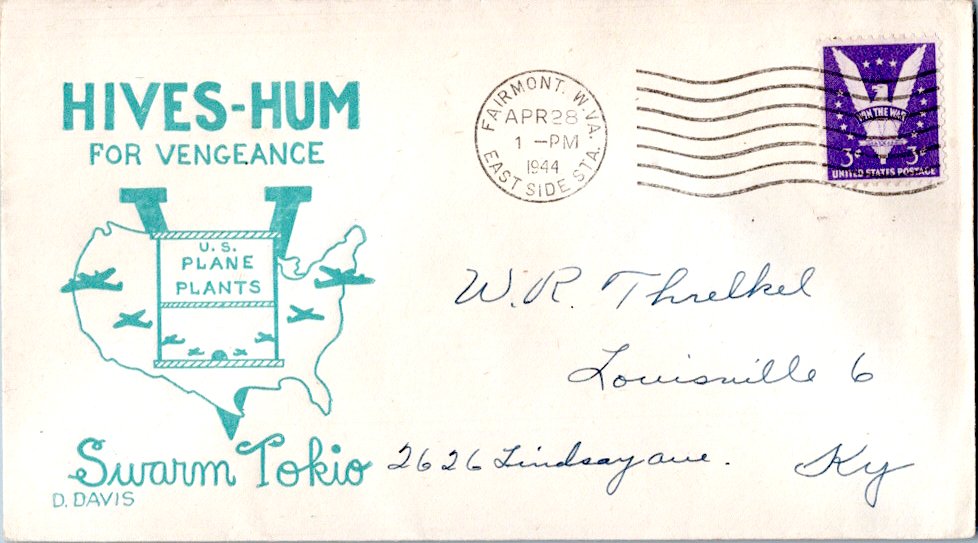 HIVES-HUM
FOR VENGEANCE
U.S.
PLANE
PLANTS
Swarm Tokio
D. DAVIS
FAIRMONT, W.VA.
APR 28
1 -PM
1944
EAST SIDE STA.
WIN THE WAR
3¢ 3¢
UNITED STATES POSTAGE
W. R. Threlkel
Louisville 6
2626 Lindsay ave.
Ky